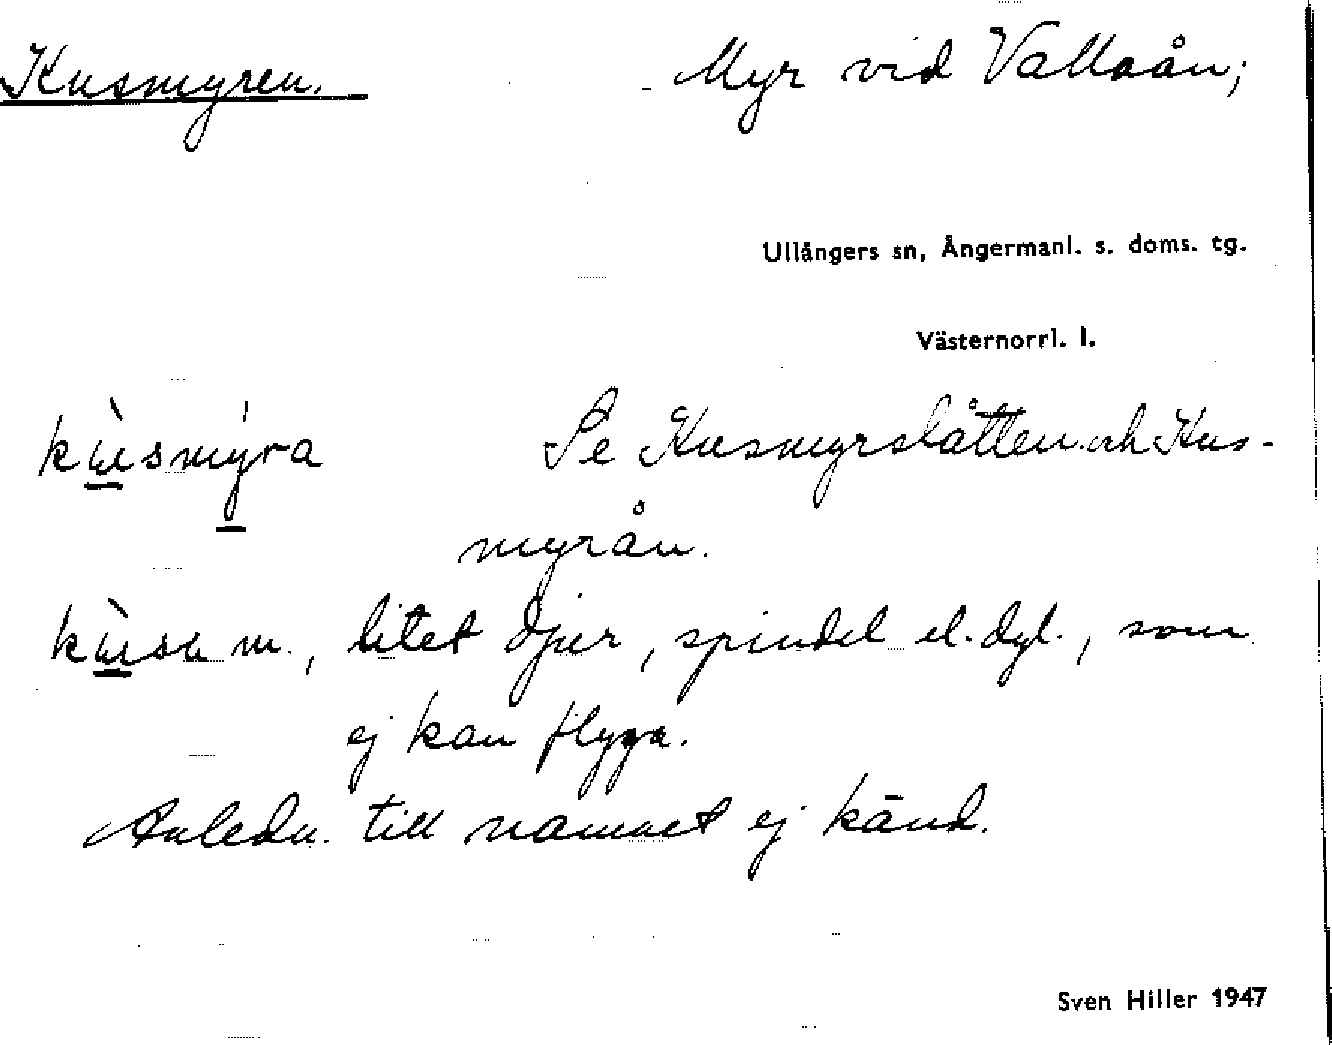 Kusmyren. Myr vid Vallaån;
Ullångers sn, Ångermanl. s. doms. tg.
Västernorrl. l.
kùsmýra Se Kusmyrslåtten och Kus-
myrån.
kùsn m., litet djur, spindel el. dyl., som
ej kan flyga.
Anledn. till namnet ej känd.
Sven Hiller 1947